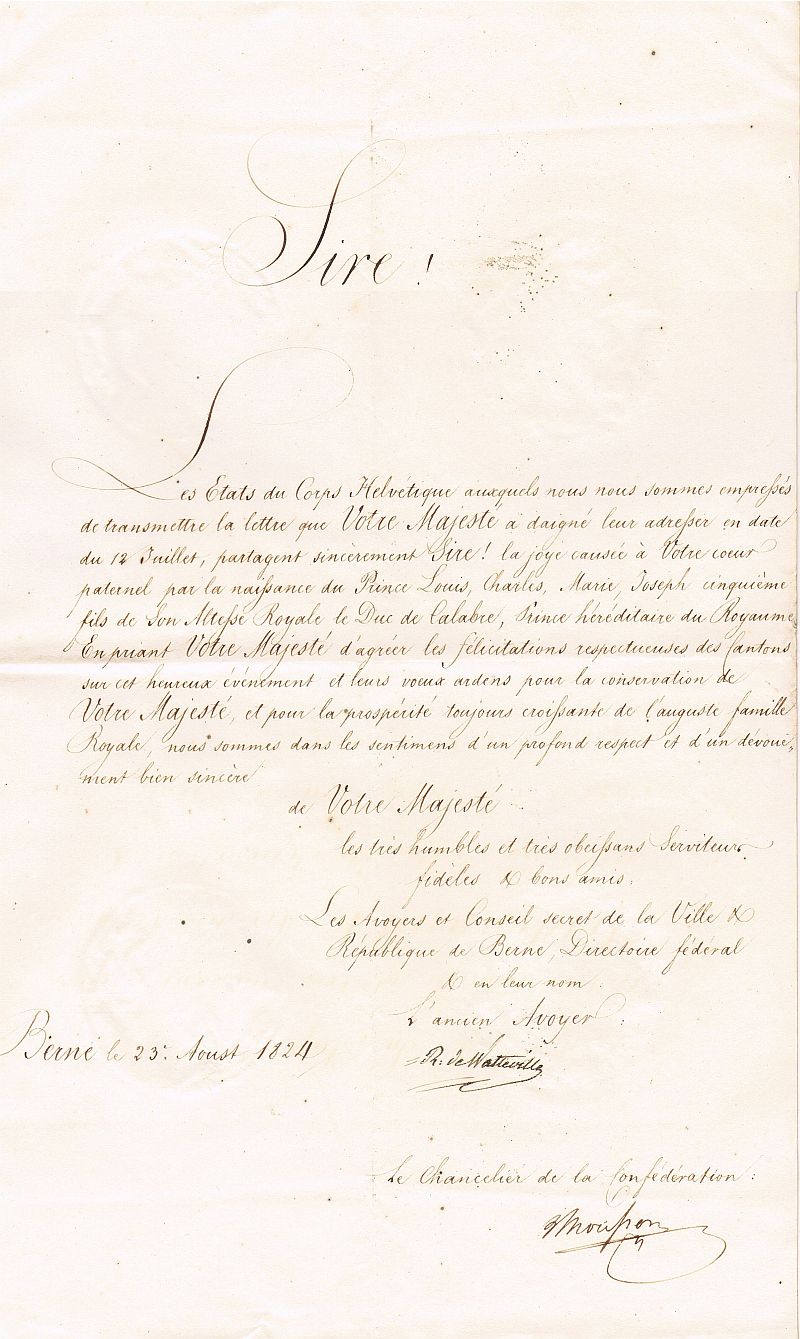 Sire !
Les Etats du Corps Helvétique auxquels nous nous sommes empressés
de transmettre la lettre que Votre Majesté a daigné leur adresser en date
du 12 Juillet, partagent sincèrement Sire ! la joye causée à Votre coeur
paternel par la naissance du Prince Louis, Charles, Marie, Joseph cinquième
fils de Son Altesse Royale le Duc de Calabre, Prince héréditaire du Royaume
En priant Votre Majesté d'agréer les félicitations respectueuses des Cantons
sur cet heureux événement et leurs voeux ardens pour la conservation de
Votre Majesté, et pour la prospérité toujours croissante de l'auguste famille
Royale, nous sommes dans les sentimens d'un profond respect et d'un dévoue-
ment bien sincère
de Votre Majesté
les très humbles et très obeissans Serviteurs
fidèles & bons amis.
Les Avoyers et Conseil secret de la Ville &
République de Berne, Directoire fédéral
& en leur nom.
L'ancien Avoyer :
Berne le 23. Aoust 1824
R. de Watteville
Le Chancelier de la Confédération :
Mousson